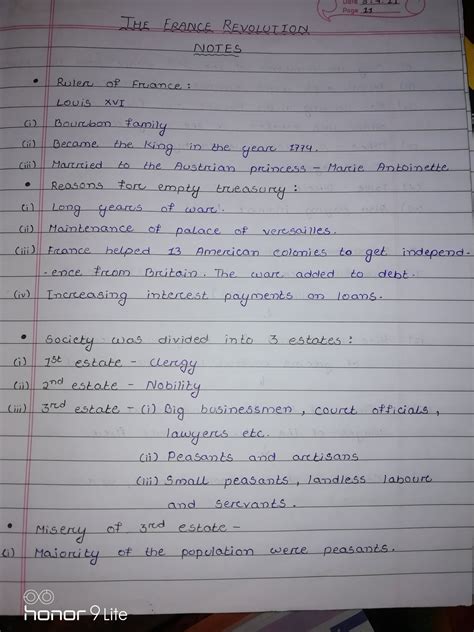 Page 21
THE FRANCE REVOLUTION
NOTES
• Ruler of France :
Louis XVI
(i) Bourbon family
(ii) Became the King in the year 1774.
(iii) Married to the Austrian princess - Marie Antoinette
• Reasons for empty treasury :
(i) Long years of war.
(ii) Maintenance of palace of versailles.
(iii) France helped 13 American colonies to get independ-
-ence from Britain. The war added to debt.
(iv) Increasing interest payments on loans.
• Society was divided into 3 estates :
(i) 1st estate - clergy
(ii) 2nd estate - Nobility
(iii) 3rd estate - (i) Big businessmen, court officials,
lawyers etc.
(ii) Peasants and artisans
(iii) Small peasants, landless labour
and servants.
• Misery of 3rd estate -
(i) Majority of the population were peasants.
honor 9 Lite